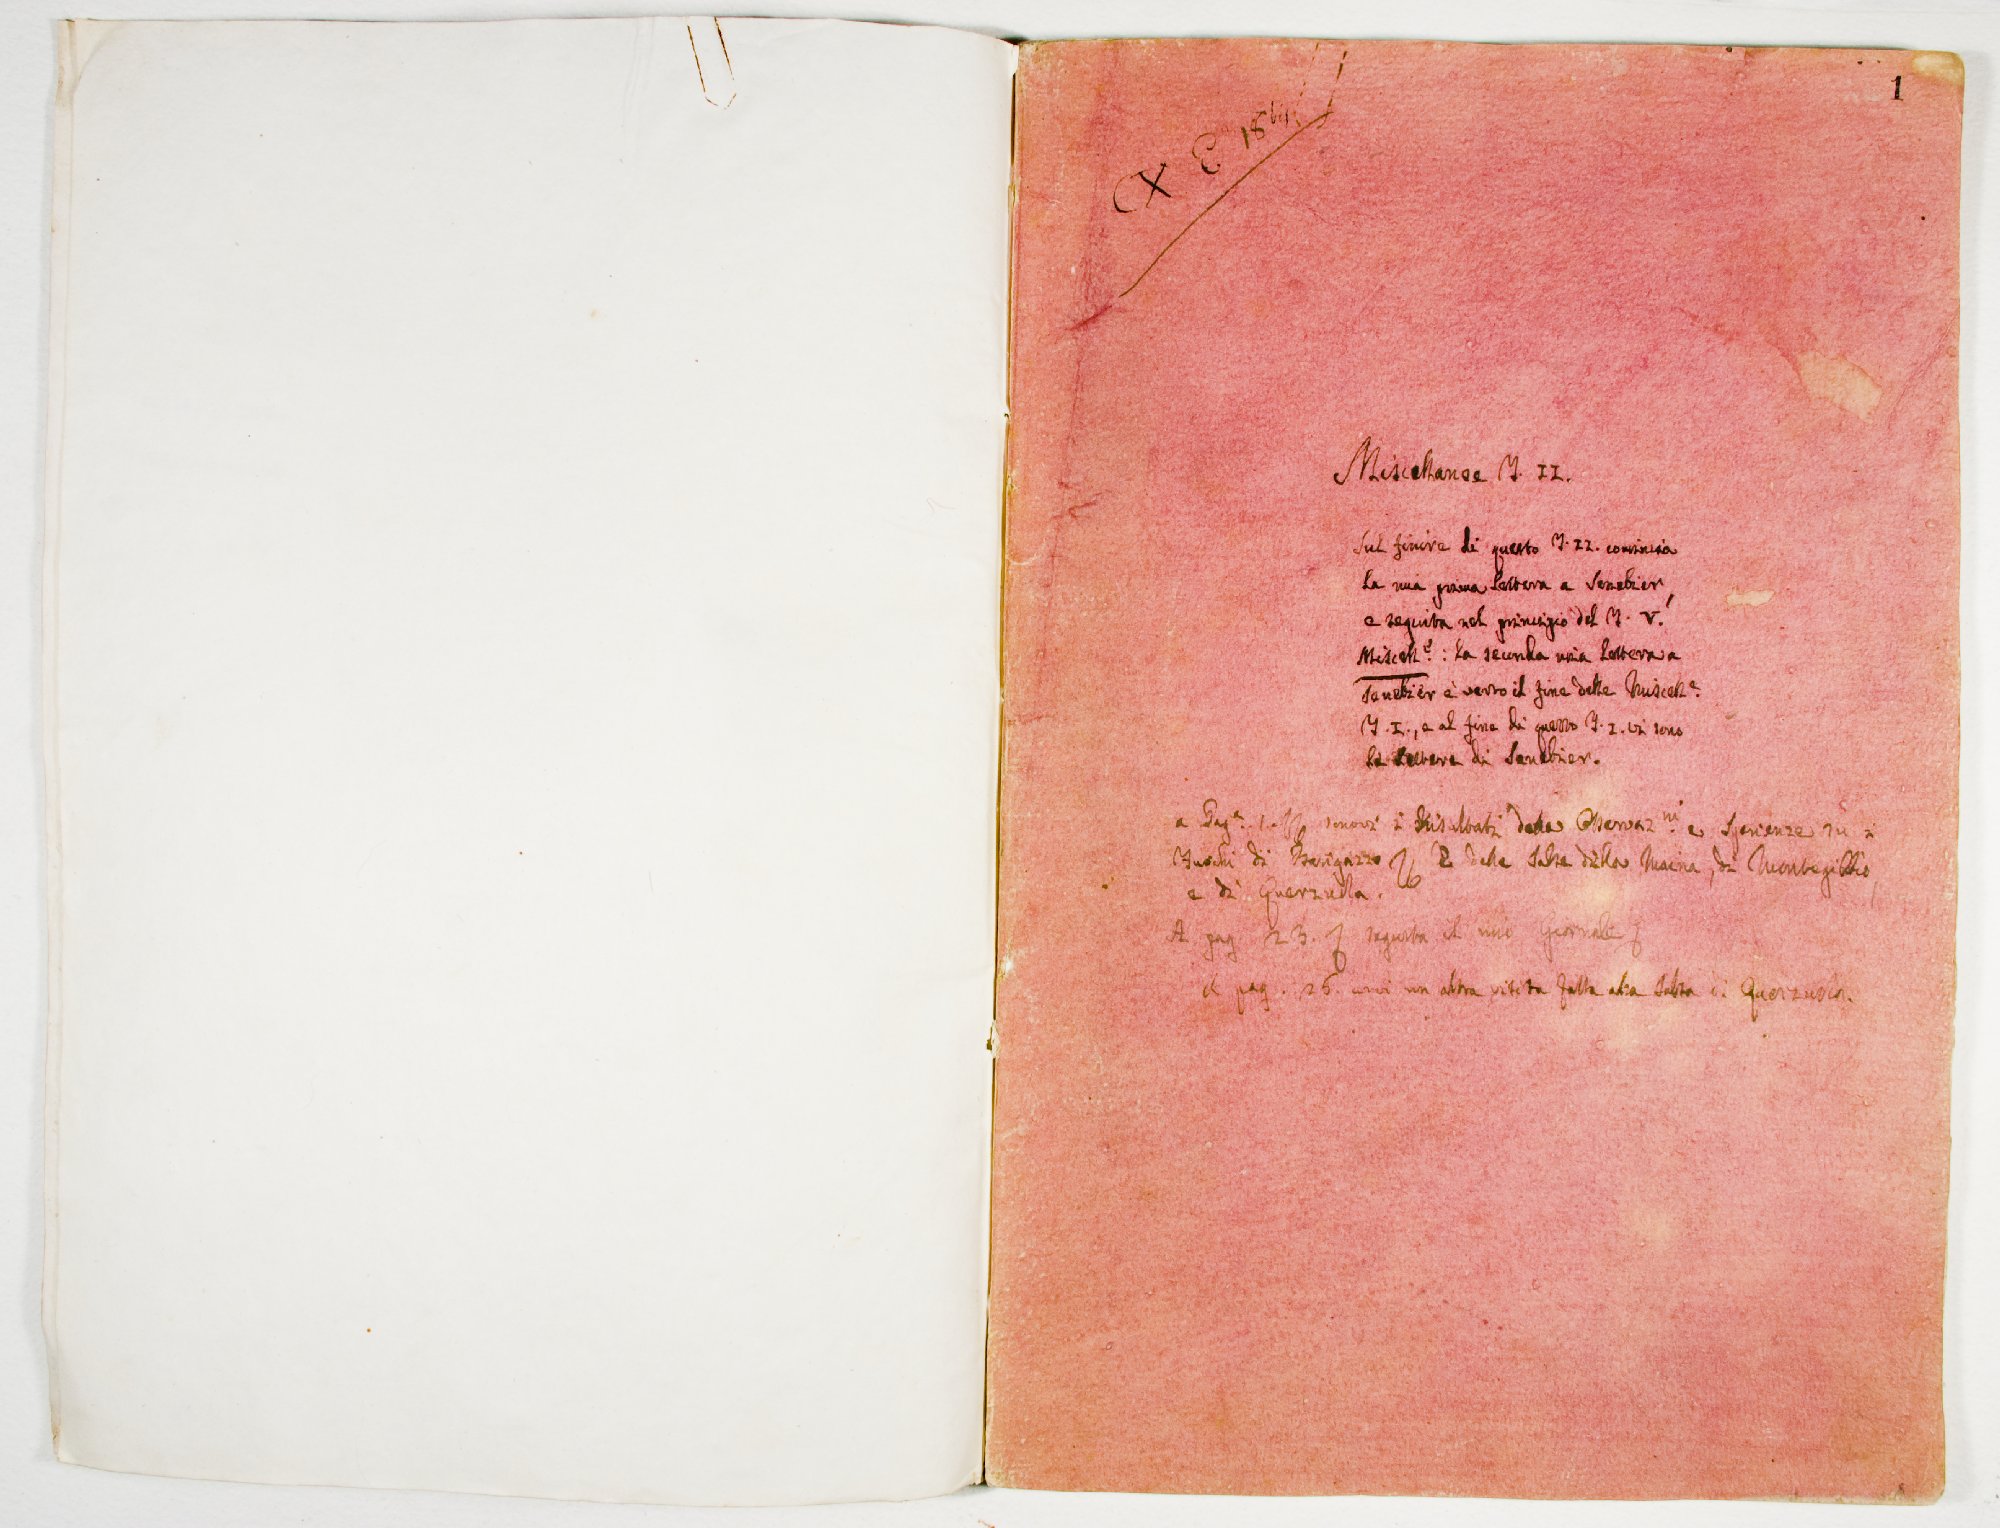 1
CX E 18 bis
Miscellanee T. II.
Sul finire di questo T. II. comincia
la mia prima lettera a Senebier,
e seguita nel principio del T. V.
Miscell.e : la seconda mia lettera a
Senebier è verso il fine delle Miscell.e
T. I., e al fine di questo T. I. vi sono
le lettere di Senebier.
a Pag.a 1. sonovi i Risultati delle Osservaz.ni e Sperienze su i
Fuochi di Barigazzo E delle Salse della Maina, di Montegibbio,
e di Querzuola.
A pag 23. seguita il mio Giornale
A pag. 26. un altra visita fatta alla Salsa di Querzuola.